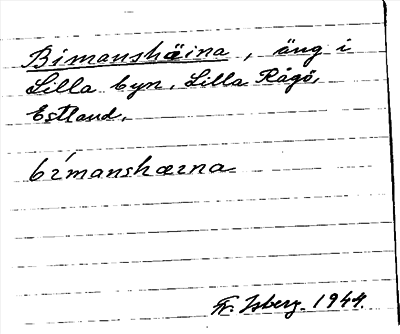 Bimanshäina, äng i
Lilla byn, Lilla Rågö,
Estland.
bímanshæɪna
Fr. Isberg. 1944.